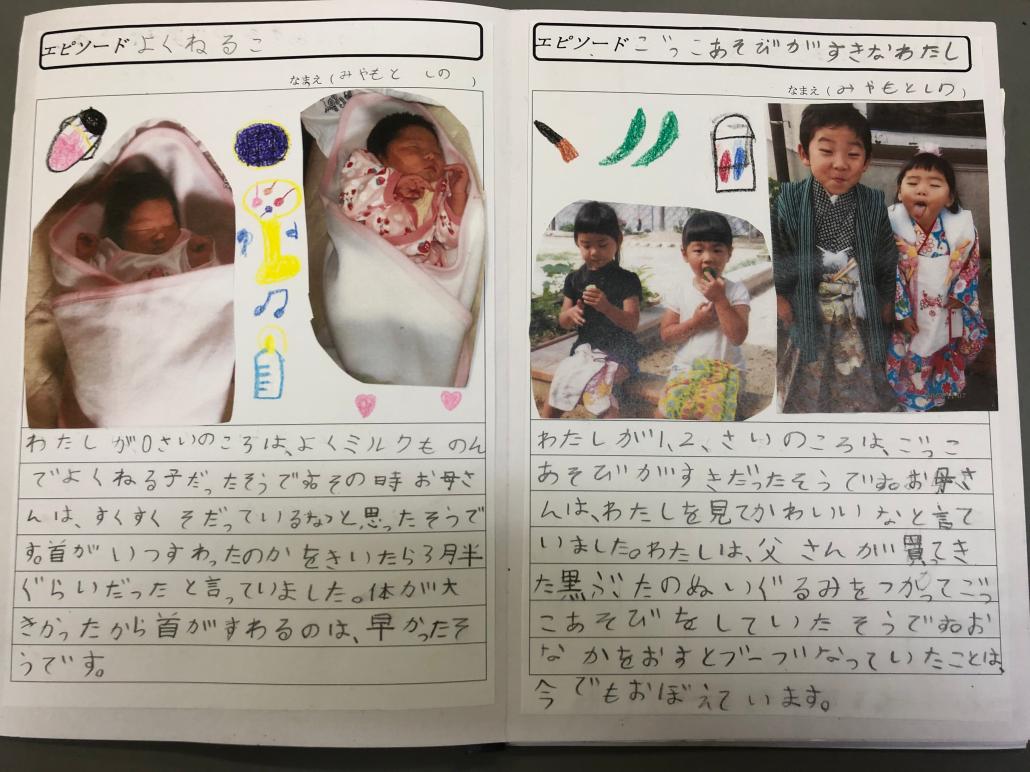 エピソード よくねるこ
なまえ（みやもと しの）
わたしが0さいのころは、よくミルクものん
でよくねる子だったそうです。その時お母さ
んは、すくすくそだっているなっと、思ったそうで
す。首がいつすわったのかをきいたら3月半
ぐらいだったと言っていました。体が大
きかったから首がすわるのは、早かったそ
うです。
エピソード ごっこあそびがすきなわたし
なまえ（みやもとしの）
わたしが1、2、さいのころは、ごっこ
あそびがすきだったそうです。お母さ
んは、わたしを見てかわいいなと言て
いました。わたしは、父さんが買てき
た黒ぶたのぬいぐるみをつかってごっ
こあそびをしていたそうです。お
なかをおすとブーブーなっていたことは、
今でもおぼえています。